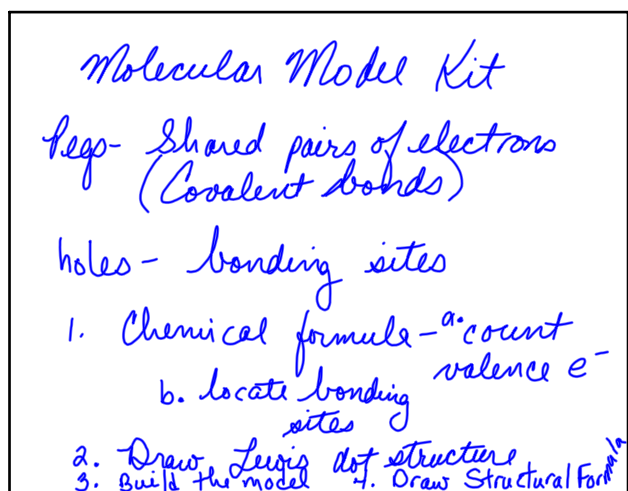 Molecular Model Kit
Pegs- Shared pairs of electrons
(Covalent bonds)
holes - bonding sites
1. Chemical formula - a. count
valence e⁻
b. locate bonding
sites
2. Draw Lewis dot structure
3. Build the model 4. Draw Structural Formula